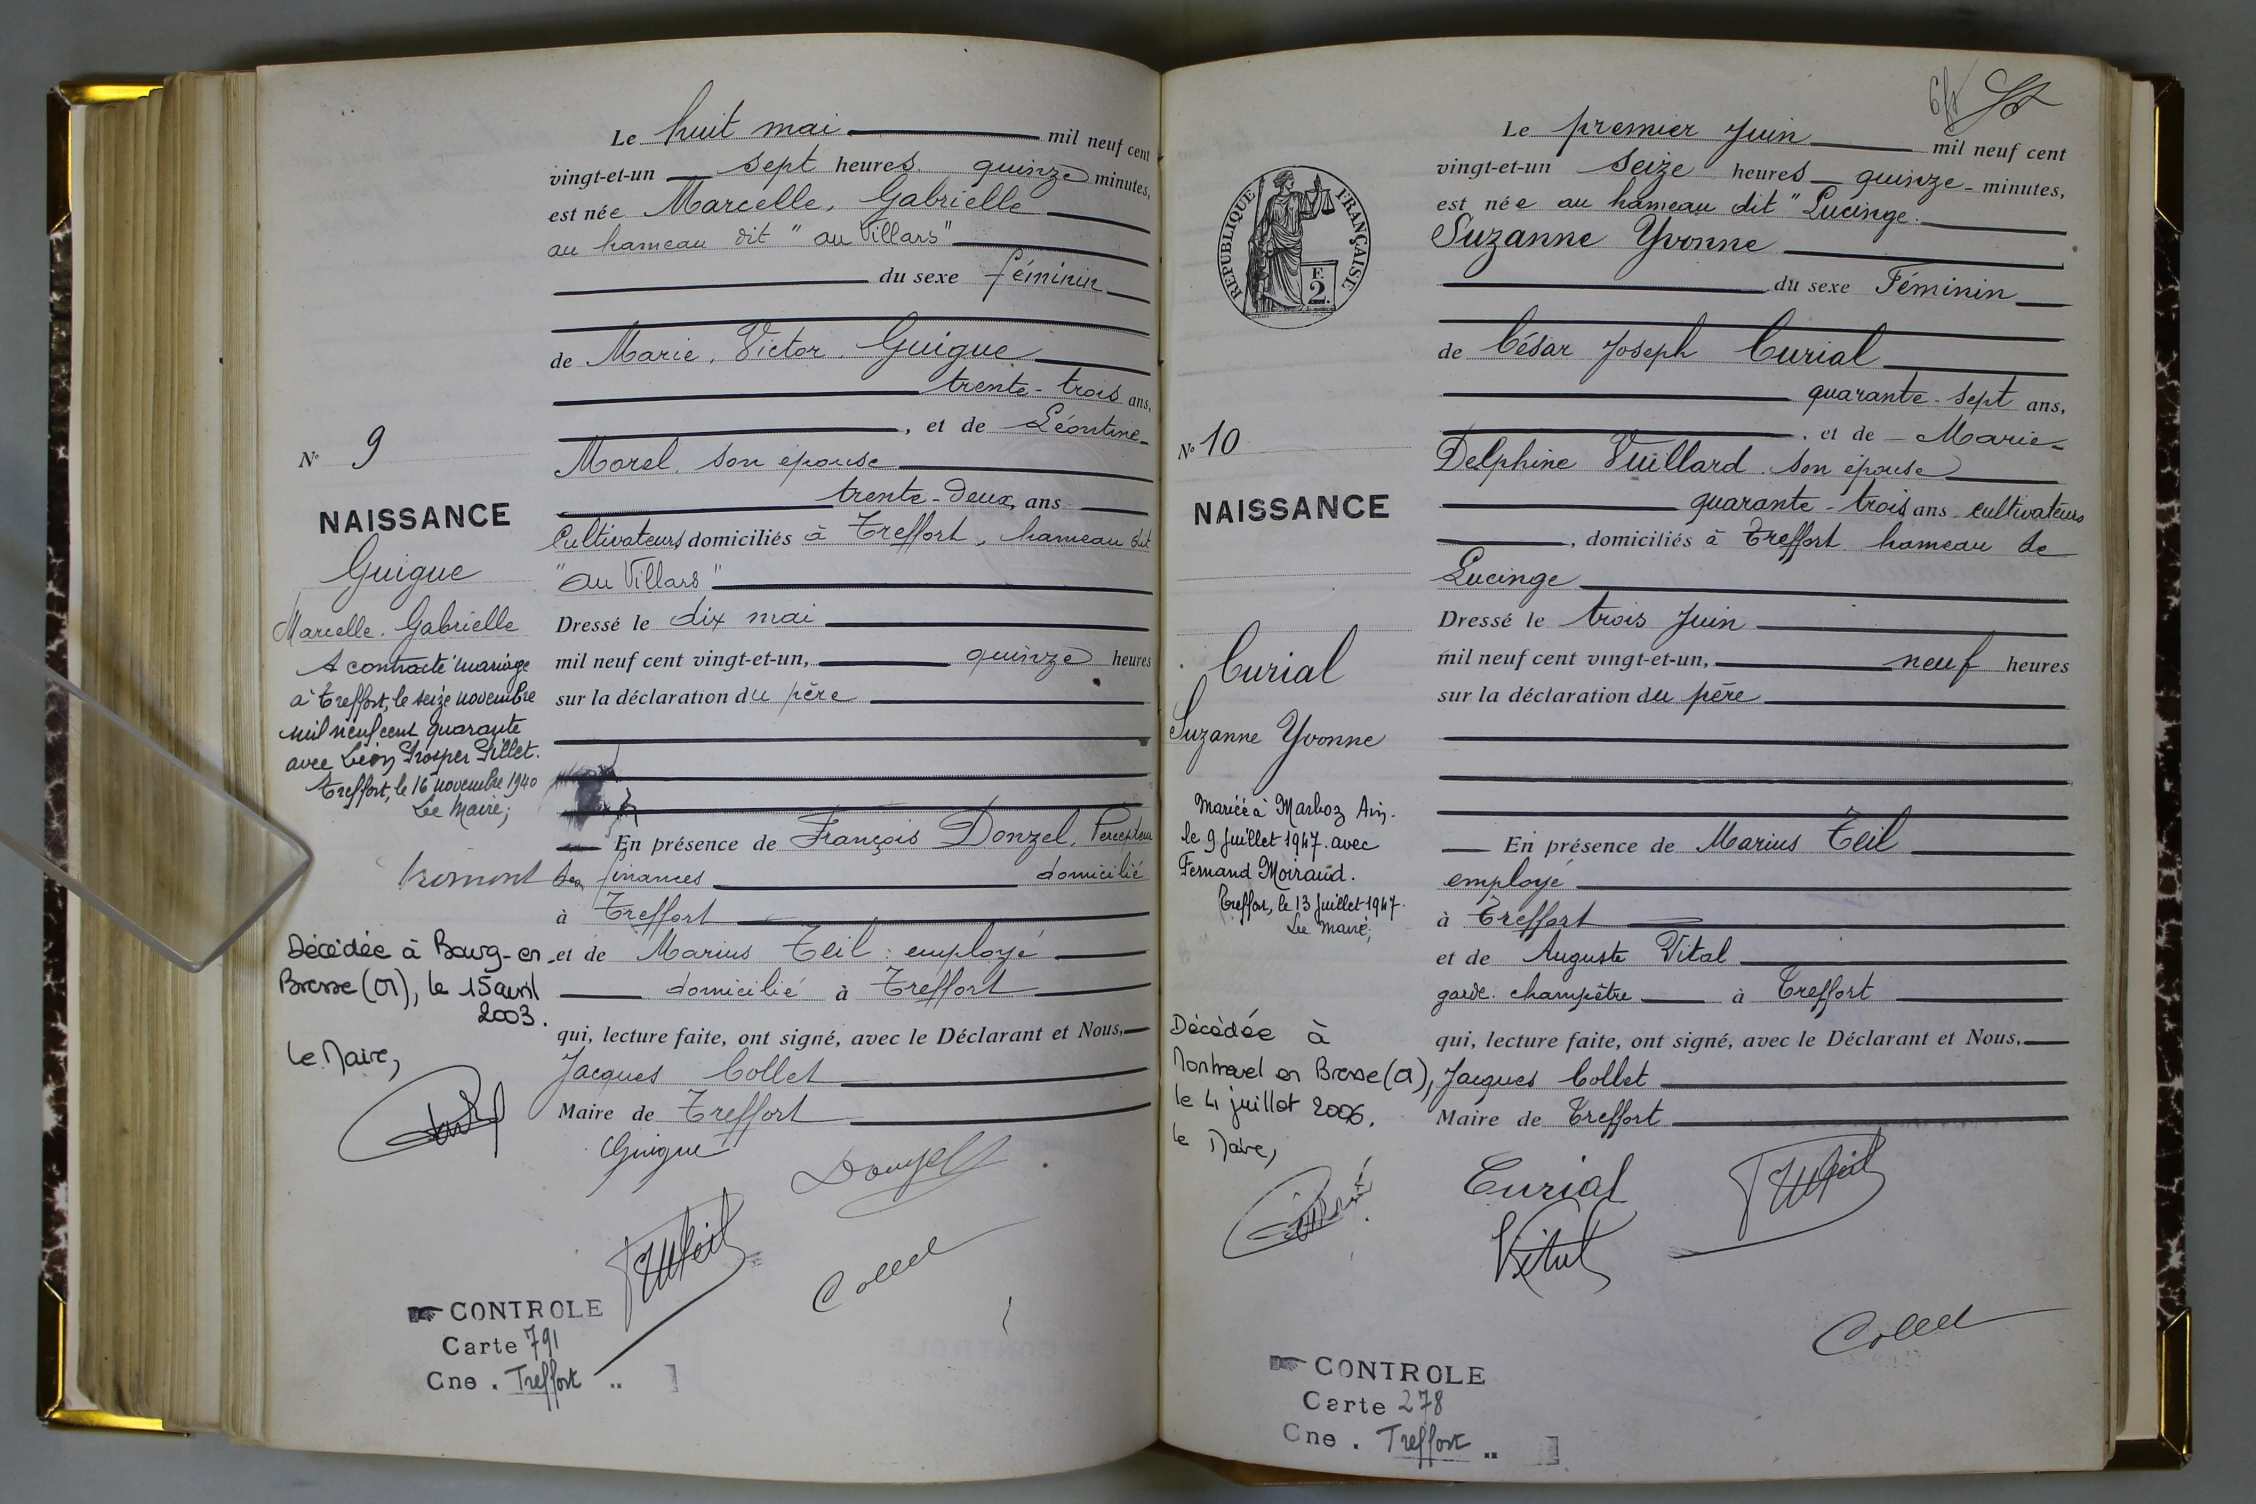 Le huit mai mil neuf cent
vingt-et-un sept heures quinze minutes,
est née Marcelle, Gabrielle
au hameau dit "au Villars"
du sexe féminin
de Marie, Victor Guigue
trente-trois ans,
, et de Léontine
Morel son épouse
trente-deux, ans
Cultivateurs domiciliés à Treffort, hameau dit
"au Villars"
Dressé le dix mai
mil neuf cent vingt-et-un, quinze heures
sur la déclaration du père
En présence de François Donzel, Percepteur
des finances domicilié
à Treffort
et de Marius Teil : employé
domicilié à Treffort
qui, lecture faite, ont signé, avec le Déclarant et Nous,
Jacques Collet
Maire de Treffort
Guigue
Donzel
Collet
N° 9
NAISSANCE
Guigue
Marcelle. Gabrielle
A contracté mariage
à Treffort, le seize novembre
mil neuf cent quarante
avec Léon Prosper Pillet.
Treffort, le 16 novembre 1940
Le Maire;
Décédée à Bourg-en-
Bresse (01), le 15 avril
2003.
Le Maire,
CONTROLE
Carte 791
Cne. Treffort
Le premier Juin mil neuf cent
vingt-et-un seize heures quinze minutes,
est née au hameau dit "Lucinge
Suzanne Yvonne
du sexe Féminin
de César Joseph Curial
quarante-sept ans,
, et de Marie-
Delphine Vuillard son épouse
quarante-trois ans cultivateurs
, domiciliés à Treffort hameau de
Lucinge
Dressé le trois Juin
mil neuf cent vingt-et-un, neuf heures
sur la déclaration du père
En présence de Marius Teil
employé
à Treffort
et de Auguste Vital
garde. champêtre à Treffort
qui, lecture faite, ont signé, avec le Déclarant et Nous,
Jacques Collet
Maire de Treffort
Curial
Vital
Collet
REPUBLIQUE FRANÇAISE
F.
2.
N° 10
NAISSANCE
Curial
Suzanne Yvonne
Mariée à Marboz Ain.
le 9 Juillet 1947. avec
Fernand Moiraud.
Treffort, le 13 Juillet 1947.
Le Maire;
Décédée à
Montrevel en Bresse (01),
le 4 juillet 2006.
le Maire,
CONTROLE
Carte 278
Cne. Treffort